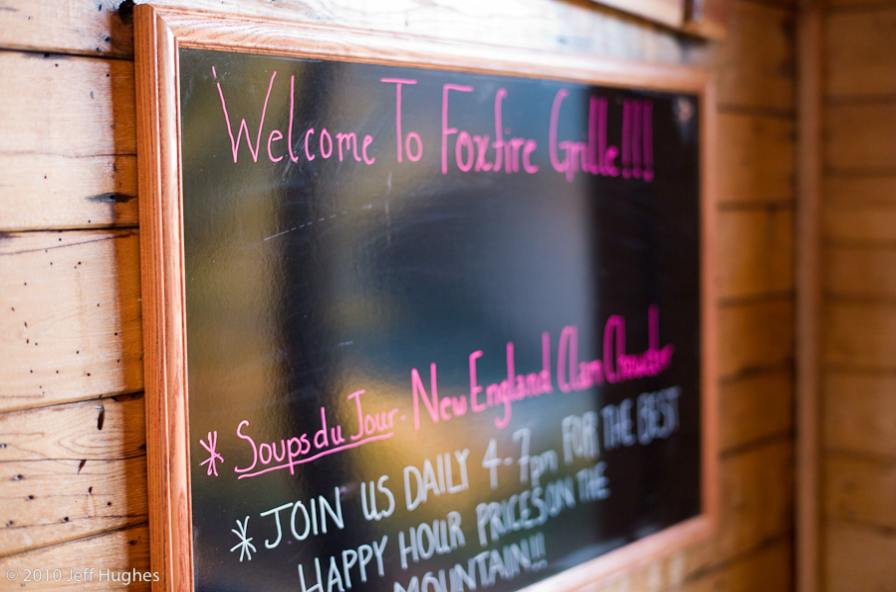 Welcome To Foxfire Grille!!!!
* Soups du Jour - New England Clam Chowder
* JOIN US DAILY 4-7pm FOR THE BEST
HAPPY HOUR PRICES ON THE
MOUNTAIN!!!
© 2010 Jeff Hughes